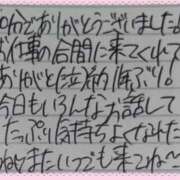 自分でありがとうございました!
お仕事の合間に来てくれて
ありがと(泣)
今日もいろんなお話して
たっぷり気持ちよくなれた
またいつでも来てね〜